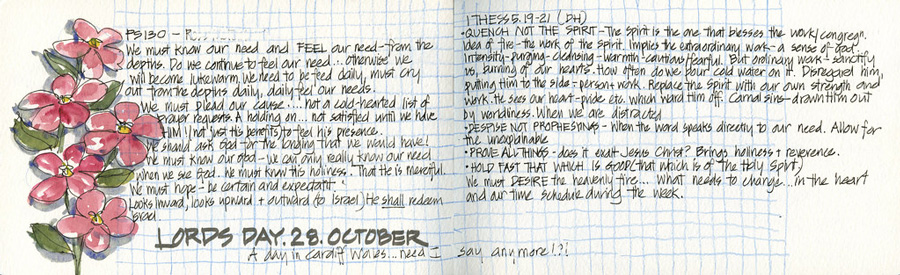 PS 130 -
We must know our need and FEEL our need - from the
depths. Do we continue to feel our need... otherwise we
will become lukewarm. We need to be feed daily, must cry
out from the depths daily, daily feel our needs.
We must plead our cause.... not a cold-hearted list of
prayer requests. A holding on... not satisfied until we have
HIM! (not just His benefits) to feel his presence.
We should ask God for the longing that we would have!
We must know our God - we can only really know our need
when we see God. he must know his holiness. That He is merciful.
We must hope - be certain and expectant.
Looks inward, looks upward + outward (to Israel) He shall redeem
Israel.
LORDS DAY. 28. OCTOBER
A day in Cardiff Wales... need I say anymore!?!
1 THESS 5. 19-21 (DH)
• QUENCH NOT THE SPIRIT - The Spirit is the one that blesses the work/congregn.
Idea of fire - the work of the Spirit. Implies the extraordinary work - a sense of God.
Intensity - purging - cleansing - warmth - cautious/fearful. But ordinary work - sanctify
us, burning of our hearts. How often do we pour cold water on it. Disregard him,
putting Him to the side: person + work. Replace the Spirit with our own strength and
work. He sees our heart - pride etc. which ward Him off. Carnal sins - drown Him out
by worldliness. When we are distracted
• DESPISE NOT PROPHESYINGS - When the word speaks directly to our need. Allow for
the unexplainable
• PROVE ALL THINGS - does it exalt Jesus Christ? Brings holiness + reverence.
• HOLD FAST THAT WHICH IS GOOD (that which is of the Holy Spirit)
We must DESIRE the heavenly fire... what needs to change... in the heart
and our time schedule during the week.